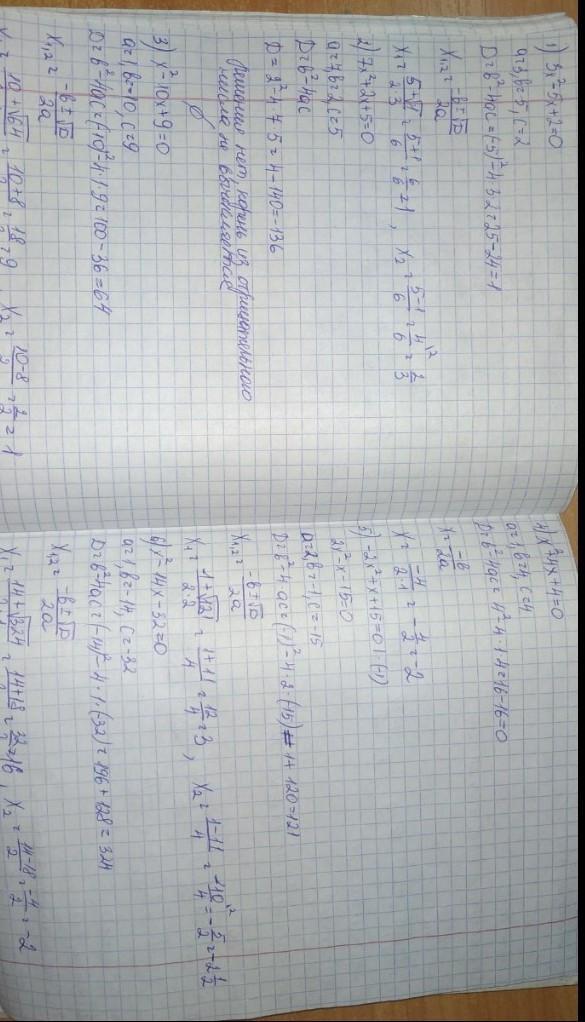 1) 3x²-5x+2=0
a=3, b=-5, c=2
D=b²-4ac=(-5)²-4·3·2=25-24=1
x₁,₂ = (-b±√D)/2a
x₁ = (5+√1)/(2·3) = (5+1)/6 = 6/6 = 1, x₂ = (5-1)/6 = 4/6 = 2/3
2) 7x²-2x+5=0
a=7 b=-2 c=5
D=b²-4ac
D=2²-4·7·5=4-140=-136
Решение нет корень из отрицательного
числа, не
3) x²-10x+9=0
a=1, b=-10, c=9
D=b²-4ac=(-10)²-4·1·9=100-36=64
x₁,₂ = (-b±√D)/2a
x₁ = (10+√64)/2 = (10+8)/2 = 18/2 = 9, x₂ = (10-8)/2 = 2/2 = 1
4) x²+4x+4=0
a=1, b=4, c=4
D=b²-4ac=4²-4·1·4=16-16=0
x = -b/2a
x = -4/(2·1) = -4/2 = -2
5) -2x²+x+15=0 |·(-1)
2x²-x-15=0
a=2, b=-1, c=-15
D=b²-4ac=(-1)²-4·2·(-15)=1+120=121
x₁,₂ = (-b±√D)/2a
x₁ = (1+√121)/(2·2) = (1+11)/4 = 12/4 = 3, x₂ = (1-11)/4 = -10/4 = -5/2 = -2 1/2
6) x²-14x-32=0
a=1, b=-14, c=-32
D=b²-4ac=(-14)²-4·1·(-32)=196+128=324
x₁,₂ = (-b±√D)/2a
x₁ = (14+√324)/2 = (14+18)/2 = 32/2 = 16, x₂ = (14-18)/2 = -4/2 = -2